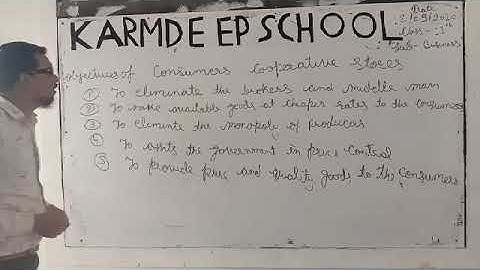 KARMDEEP SCHOOL
Date
Class-
Sub- Business
objectives of Consumers Cooperative Stores
① To eliminate the brokers and middle man
② To make available goods at cheaper rates to the consumers
③ To eliminate the monopoly of producers
To the government in price control
⑤ To provide pure and quality goods to the consumers